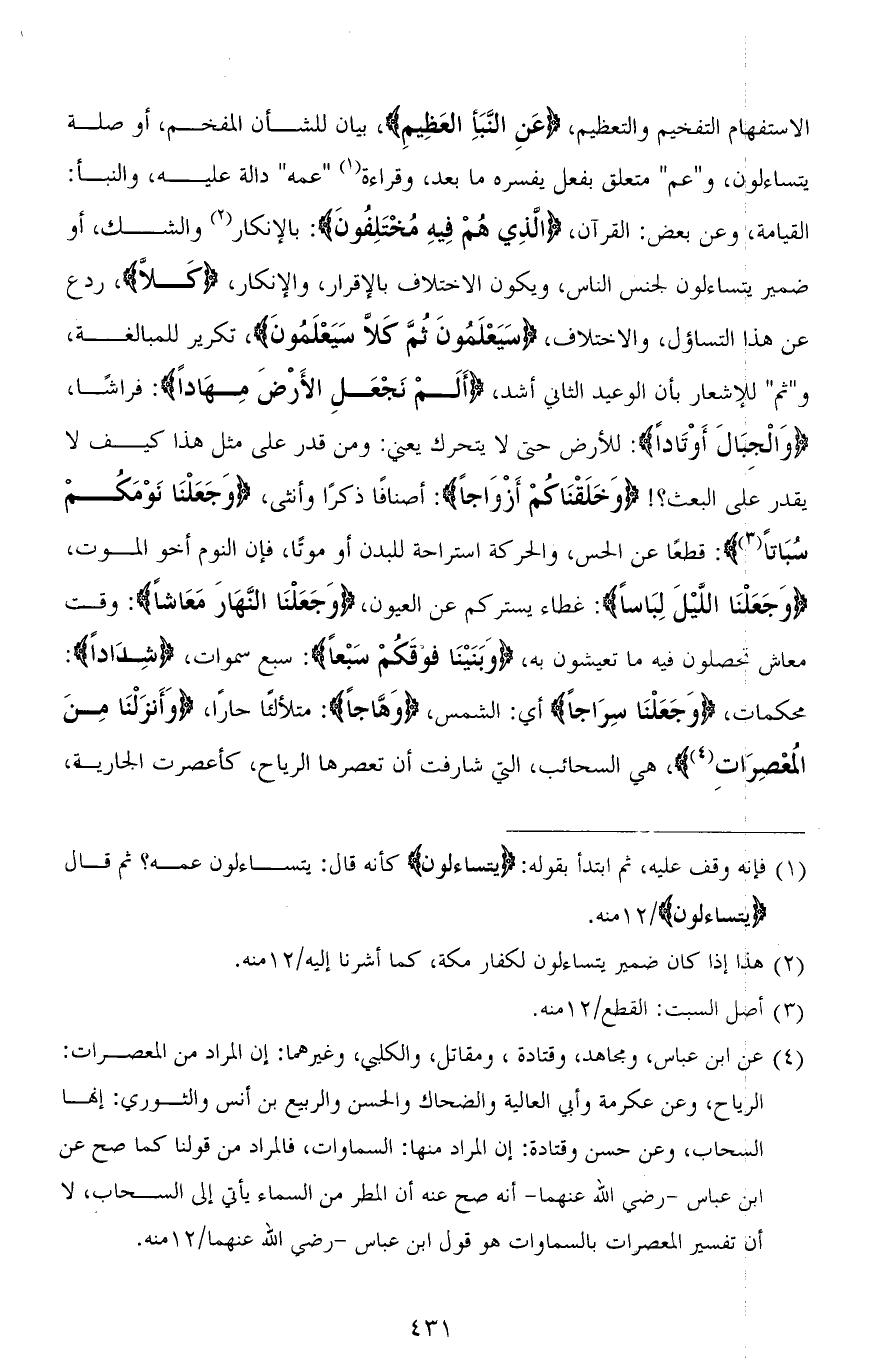 الاستفهام التفخيم والتعظيم، ﴿عَنِ النَّبَأِ العَظِيمِ﴾، بيان للشأن المفخم، أو صلة
يتساءلون، و"عم" متعلق بفعل يفسره ما بعد، وقراءة(١) "عمه" دالة عليه، والنبأ:
القيامة، وعن بعض: القرآن، ﴿الَّذِي هُمْ فِيهِ مُخْتَلِفُونَ﴾: بالإنكار(٢) والشك، أو
ضمير يتساءلون لجنس الناس، ويكون الاختلاف بالإقرار، والإنكار، ﴿كَلاَّ﴾، ردع
عن هذا التساؤل، والاختلاف، ﴿سَيَعْلَمُونَ ثُمَّ كَلاَّ سَيَعْلَمُونَ﴾، تكرير للمبالغة،
و"ثم" للإشعار بأن الوعيد الثاني أشد، ﴿أَلَمْ نَجْعَلِ الأَرْضَ مِهَاداً﴾: فراشًا،
﴿وَالْجِبَالَ أَوْتَاداً﴾: للأرض حتى لا يتحرك يعني: ومن قدر على مثل هذا كيف لا
يقدر على البعث؟! ﴿وَخَلَقْنَاكُمْ أَزْوَاجاً﴾: أصنافًا ذكرًا وأنثى، ﴿وَجَعَلْنَا نَوْمَكُمْ
سُبَاتاً(٣)﴾: قطعًا عن الحس، والحركة استراحة للبدن أو موتًا، فإن النوم أخو الموت،
﴿وَجَعَلْنَا اللَّيْلَ لِبَاساً﴾: غطاء يستركم عن العيون، ﴿وَجَعَلْنَا النَّهَارَ مَعَاشاً﴾: وقت
معاش تحصلون فيه ما تعيشون به، ﴿وَبَنَيْنَا فَوْقَكُمْ سَبْعاً﴾: سبع سموات، ﴿شِدَاداً﴾:
محكمات، ﴿وَجَعَلْنَا سِرَاجاً﴾ أي: الشمس، ﴿وَهَّاجاً﴾: متلألئًا حارًا، ﴿وَأَنزَلْنَا مِنَ
الْمُعْصِرَاتِ(٤)﴾، هي السحائب، التي شارفت أن تعصرها الرياح، كأعصرت الجارية،
(١) فإنه وقف عليه، ثم ابتدأ بقوله: ﴿يتساءلون﴾ كأنه قال: يتساءلون عمه؟ ثم قال
﴿يتساءلون﴾/١٢منه.
(٢) هذا إذا كان ضمير يتساءلون لكفار مكة، كما أشرنا إليه/١٢منه.
(٣) أصل السبت: القطع/١٢منه.
(٤) عن ابن عباس، ومجاهد، وقتادة ، ومقاتل، والكلبي، وغيرهما: إن المراد من المعصرات:
الرياح، وعن عكرمة وأبي العالية والضحاك والحسن والربيع بن أنس والثوري: إنها
السحاب، وعن حسن وقتادة: إن المراد منها: السماوات، فالمراد من قولنا كما صح عن
ابن عباس -رضي الله عنهما- أنه صح عنه أن المطر من السماء يأتي إلى السحاب، لا
أن تفسير المعصرات بالسماوات هو قول ابن عباس -رضي الله عنهما/١٢منه.
٤٣١